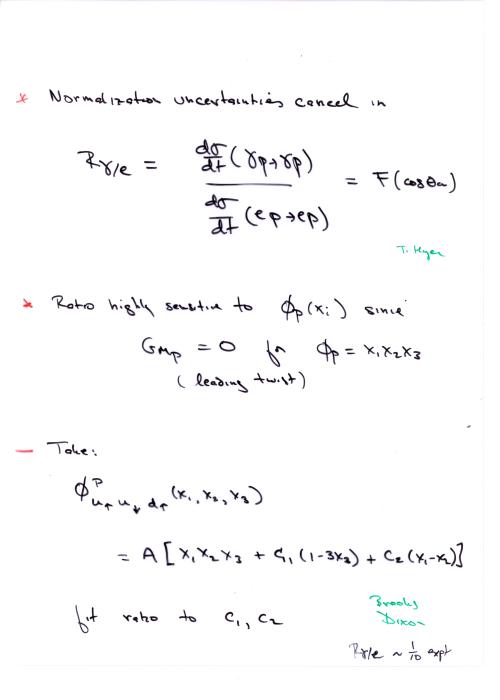 * Normalization uncertainties cancel in
Rγ/e = dσ/dt (γp→γp) / dσ/dt (ep→ep) = F(cosθcm)
T. Hyer
* Ratio highly sensitive to ϕp(xi) since
GMp = 0 for ϕp = x1x2x3
(leading twist)
— Take:
ϕᴾu↑u↓d↑ (x1, x2, x3)
= A[x1x2x3 + C1(1-3x3) + C2(x1-x2)]
fit ratio to C1, C2
Brooks
Dixon
Rγ/e ~ 1/10 expt